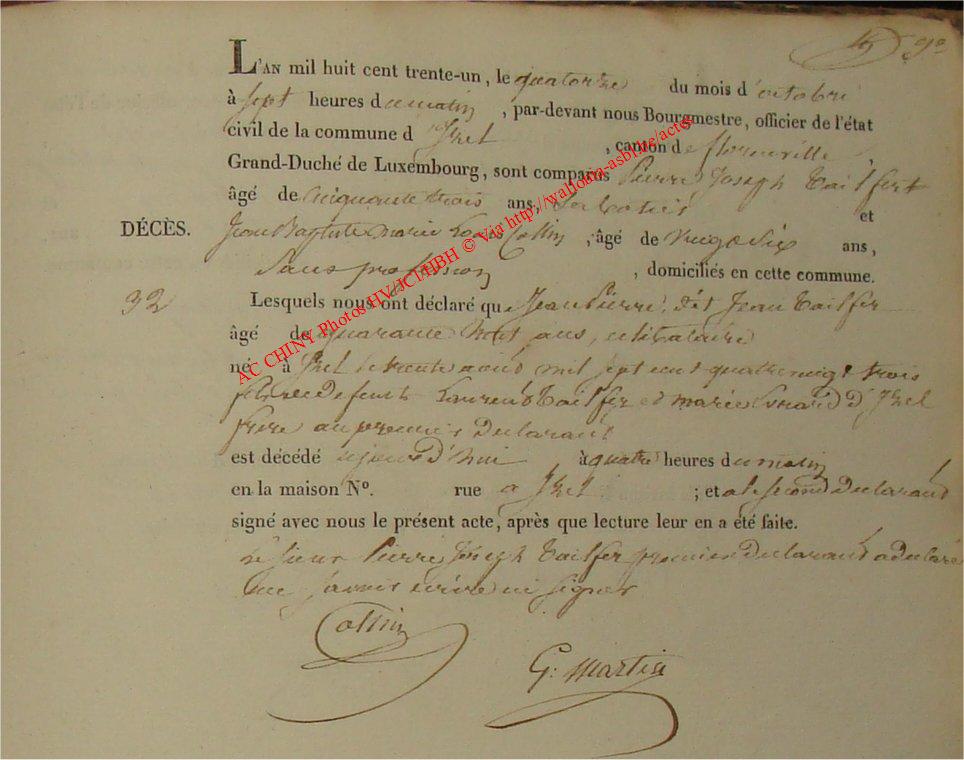 90
L'AN mil huit cent trente-un, le quatorze du mois d'octobre
à sept heures du matin, par-devant nous Bourgmestre, officier de l'état
civil de la commune d'Izel, canton de florenville,
Grand-Duché de Luxembourg, sont comparus Pierre Joseph Tailfert
âgé de cinquante trois ans, et
DÉCÈS.
Jean Baptiste marie Louis Collin, âgé de vingt Six ans,
Sans profession, domiciliés en cette commune.
32
Lesquels nous ont déclaré que Jean Pierre, dit Jean Tailfer
âgé de quarante huit ans, célibataire
né à Izel le trente août mil sept cent quatre vingt trois
fils de defunts Laurent Tailfer et marie d'Izel
frere au premier Déclarant
est décédé cejourd'hui à quatre heures du matin
en la maison N°. rue a Izel ; et a le second Declarant
signé avec nous le présent acte, après que lecture leur en a été faite.
le sieur Pierre Joseph Tailfer premier declarant a declaré
ne savoir écrire ni signer
Collin
G. Martin
AC CHINY Photos HV/JCI/HBH © Via http://wallonia-asbl.be/actes